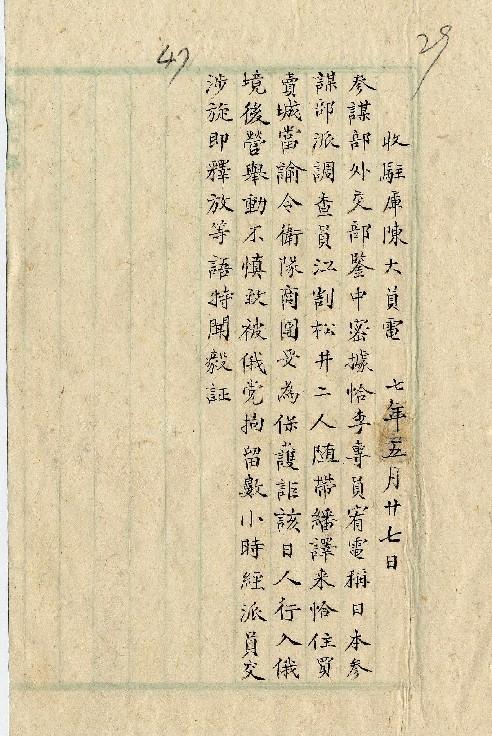 29
47
收駐庫陳大員電 七年五月廿七日
參謀部外交部鑒中密據恰李專員宥電稱日本參
謀部派調查員江割松井二人随帶繙譯来恰住買
賣城當諭令衛隊商團妥為保護詎該日人行入俄
境後營舉動不慎致被俄党拘留數小時經派員交
涉旋即釋放等語特聞毅証